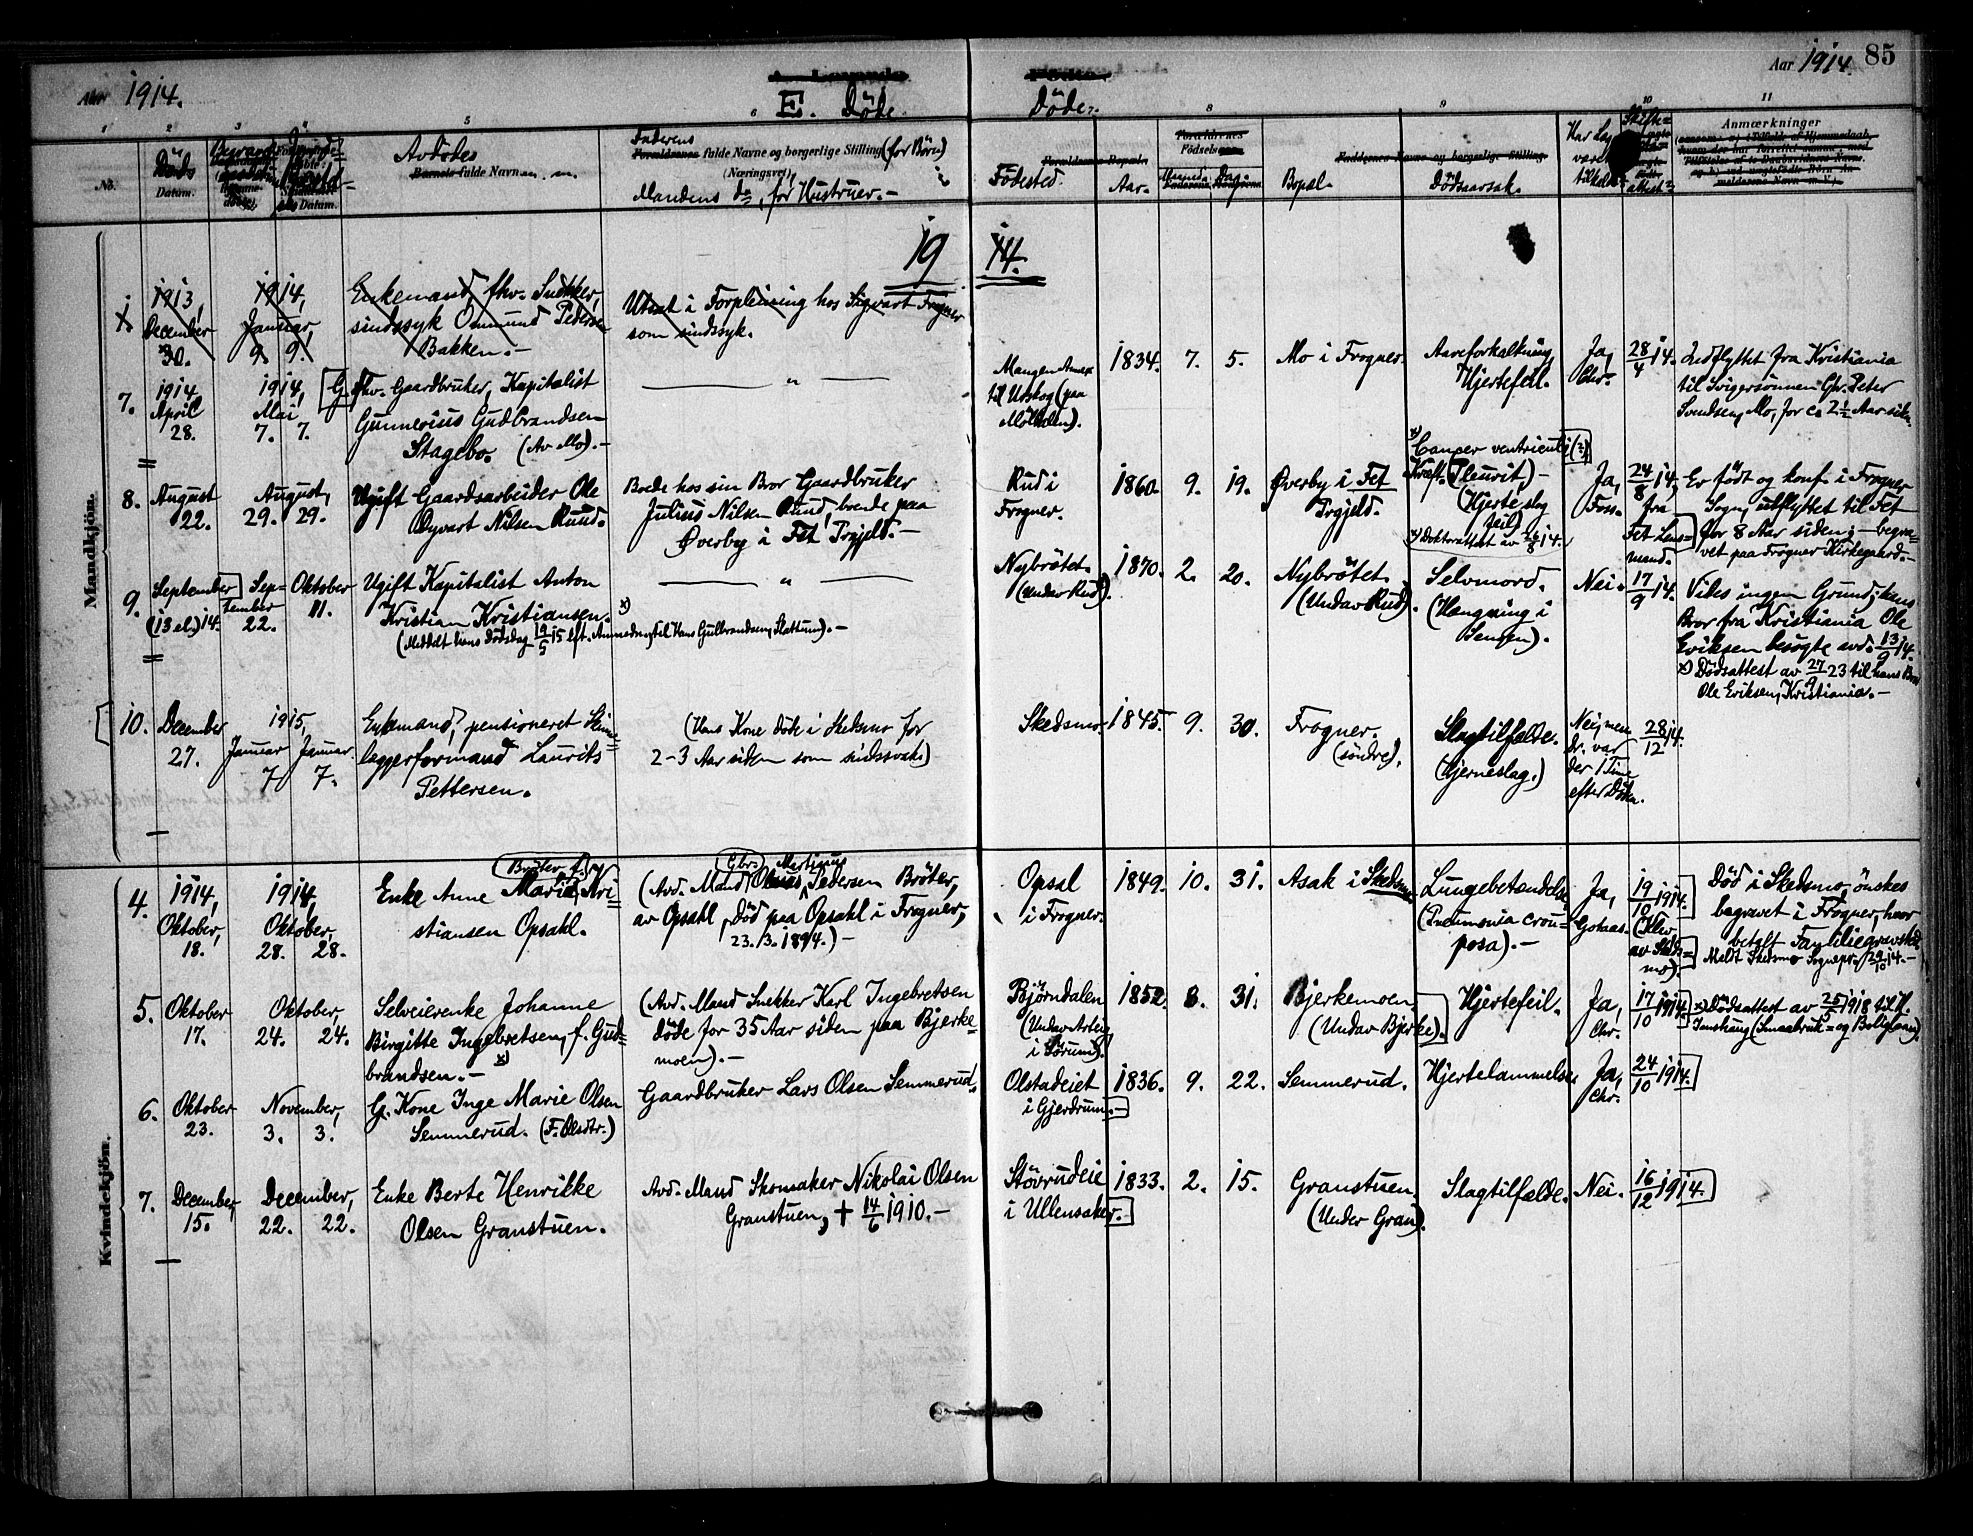 Aar 1914.
E. Døde.
Døde.
Aar 1914.
85
1 2 3 4 5 6 8 9 10 11
No.
Døds
Datum.
Datum.
Avdødes
Barnets fulde Navn
Faderens
Forældrenes fulde Navne og borgerlige Stilling (for Börn)
(Næringsvei)
Mandens do, for Hustruer.-
Fødested.
Aar.
Födsels
Dag.
Bopæl.
Dödsaarsak.
Anmærkninger
19 14.
Mandkjön.
1
1913,
December
30.
1914,
Januar,
9. 9.
Enkemand, fhv. Snekker,
sindssyk Osmund Pedersen
Bakken.-
Utsat i Forpleining hos Sigvart Frogner
som sindssyk.
7.
1914
April
28.
1914,
Mai
7. 7.
G. Fhv. Gaardbruker, Kapitalist
Gunnerius Gudbrandsen
Stagebo. (Av Mo).-
— " —
Mangen Annex
til Urskog (paa
1834. 7. 5.
Mo i Frogner.
Aareforkalkning,
Hjertefeil.
Ja,
Chr.
28/4 14.
Indflyttet fra Kristiania
til Svigersønnen Gbr. Peter
Svendsen, Mo, for ca 2½ Aar siden.
8.
August
22.
August,
29. 29.
Ugift Gaardsarbeider Ole
Øyvart Nilsen Ruud.
Boede hos sin Bror Gaardbruker
Julius Nilsen Ruud, boende paa
Øverby i Fet Prgjeld.-
Rud i
Frogner.
1860. 9. 19.
Øverby i Fet
Prgjeld.
x) Cancer ventriculi (?)
Kræft. (Pleurit)-
(Hjerteslag
feil)
x) Doktorattest av 26/8 14.
Ja,
Foss.
24/8 14,
fra
Fet Lens=
mand.
Er født og konf. i Frogner
Sogn, utflyttet til Fet
for 8 Aar siden; - begra=
vet paa Frogner Kirkegaard.-
9.
September
(13 el.) 14.
Sep=
tember
22.
Oktober
11.
Ugift Kapitalist Anton
Kristian Kristiansen. x)
(Meddelt hans Dødsdag 19/5 15 eft. Anmodn. til Hans Gulbrandsen, Slattum).-
— " —
Nybrötet.
(Undav Rud).
1870. 2. 20.
Nybrötet.
(Undav Rud).
Selvmord.
(Hengning i
Sengen).
Nei.
17/9 14.
Vides ingen Grund; hans
Bror fra Kristiania Ole
Eriksen besøgte avd. 13/9 14.
x) Dødsattest av 27/9 23 til hans Bror
Ole Eriksen, Kristiania.-
10.
December
27.
1915,
Januar Januar
7 7.
Enkemand, pensioneret Skinne=
leggerformand Laurits
Pettersen.
(Hans Kone døde i Skedsmo for
2-3 Aar siden som sindssvak)
Skedsmo
1845. 9. 30.
Frogner.
(søndre).
Slagtilfælde.
(Hjerneslag.)
Nei, men
dr. var
der 1 Time
efter Døden.
28/12 14.
Kvindekjön.
4.
1914,
Oktober,
18.
1914,
Oktober,
28. 28.
Brøter, f.
Enke Anne Marie Kri=
stiansen Opsahl.
Gbr. Martinus
(Avd. Mand Pedersen Brøter,
av Opsahl, død paa Opsahl i Frogner,
23./3. 1894.)-
Opsal
i Frogner.
1849. 10. 31.
Asak i Skedsmo
Lungebetændelse
(Pneumonia crou=
posa).-
Ja,
Gotaas.
19/10 1914.
mo).
Død i Skedsmo, önskes
begravet i Frogner, hvor
betalt Familiegravsted
Meldt Skedsmo Sognepr. 29/10 14.-
5.
Oktober
17.
Oktober,
24. 24.
Selveierenke Johanne
Birgitte Ingebretsen, f. Gud=
brandsen.- x)
(Avd. Mand Snekker Karl Ingebretsen
døde for 35 Aar siden paa Bjerke=
moen).-
Björndalen
(Undav Arteig
i Sørum).
1852 8. 31.
Bjerkemoen
(Undav Bjerke).
Hjertefeil.
Ja,
Chr.
17/10 1914.
x) Dødsattest av 25/5 1918 til H.
(Smaabruk= og Boliglaan).
6.
Oktober
23.
November,
3. 3.
G. Kone Inge Marie Olsen
Semmerud. (F. Olsdtr.)
Gaardbruker Lars Olsen Semmerud.
Olstadeiet
i Gjerdrum.-
1836. 9. 22.
Semmerud.
Hjertelammelse
Ja,
Chr.
24/10 1914.
7.
December,
15.
December,
22. 22.
Enke Berte Henrikke
Olsen Granstuen.
Avd. Mand Skomaker Nikolai Olsen
Granstuen, + 14/6 1910.-
Støvrudeie
i Ullensaker.
1833. 2. 15.
Granstuen.
(Under Grau).
Slagtilfælde.
Nei.
16/12 1914.